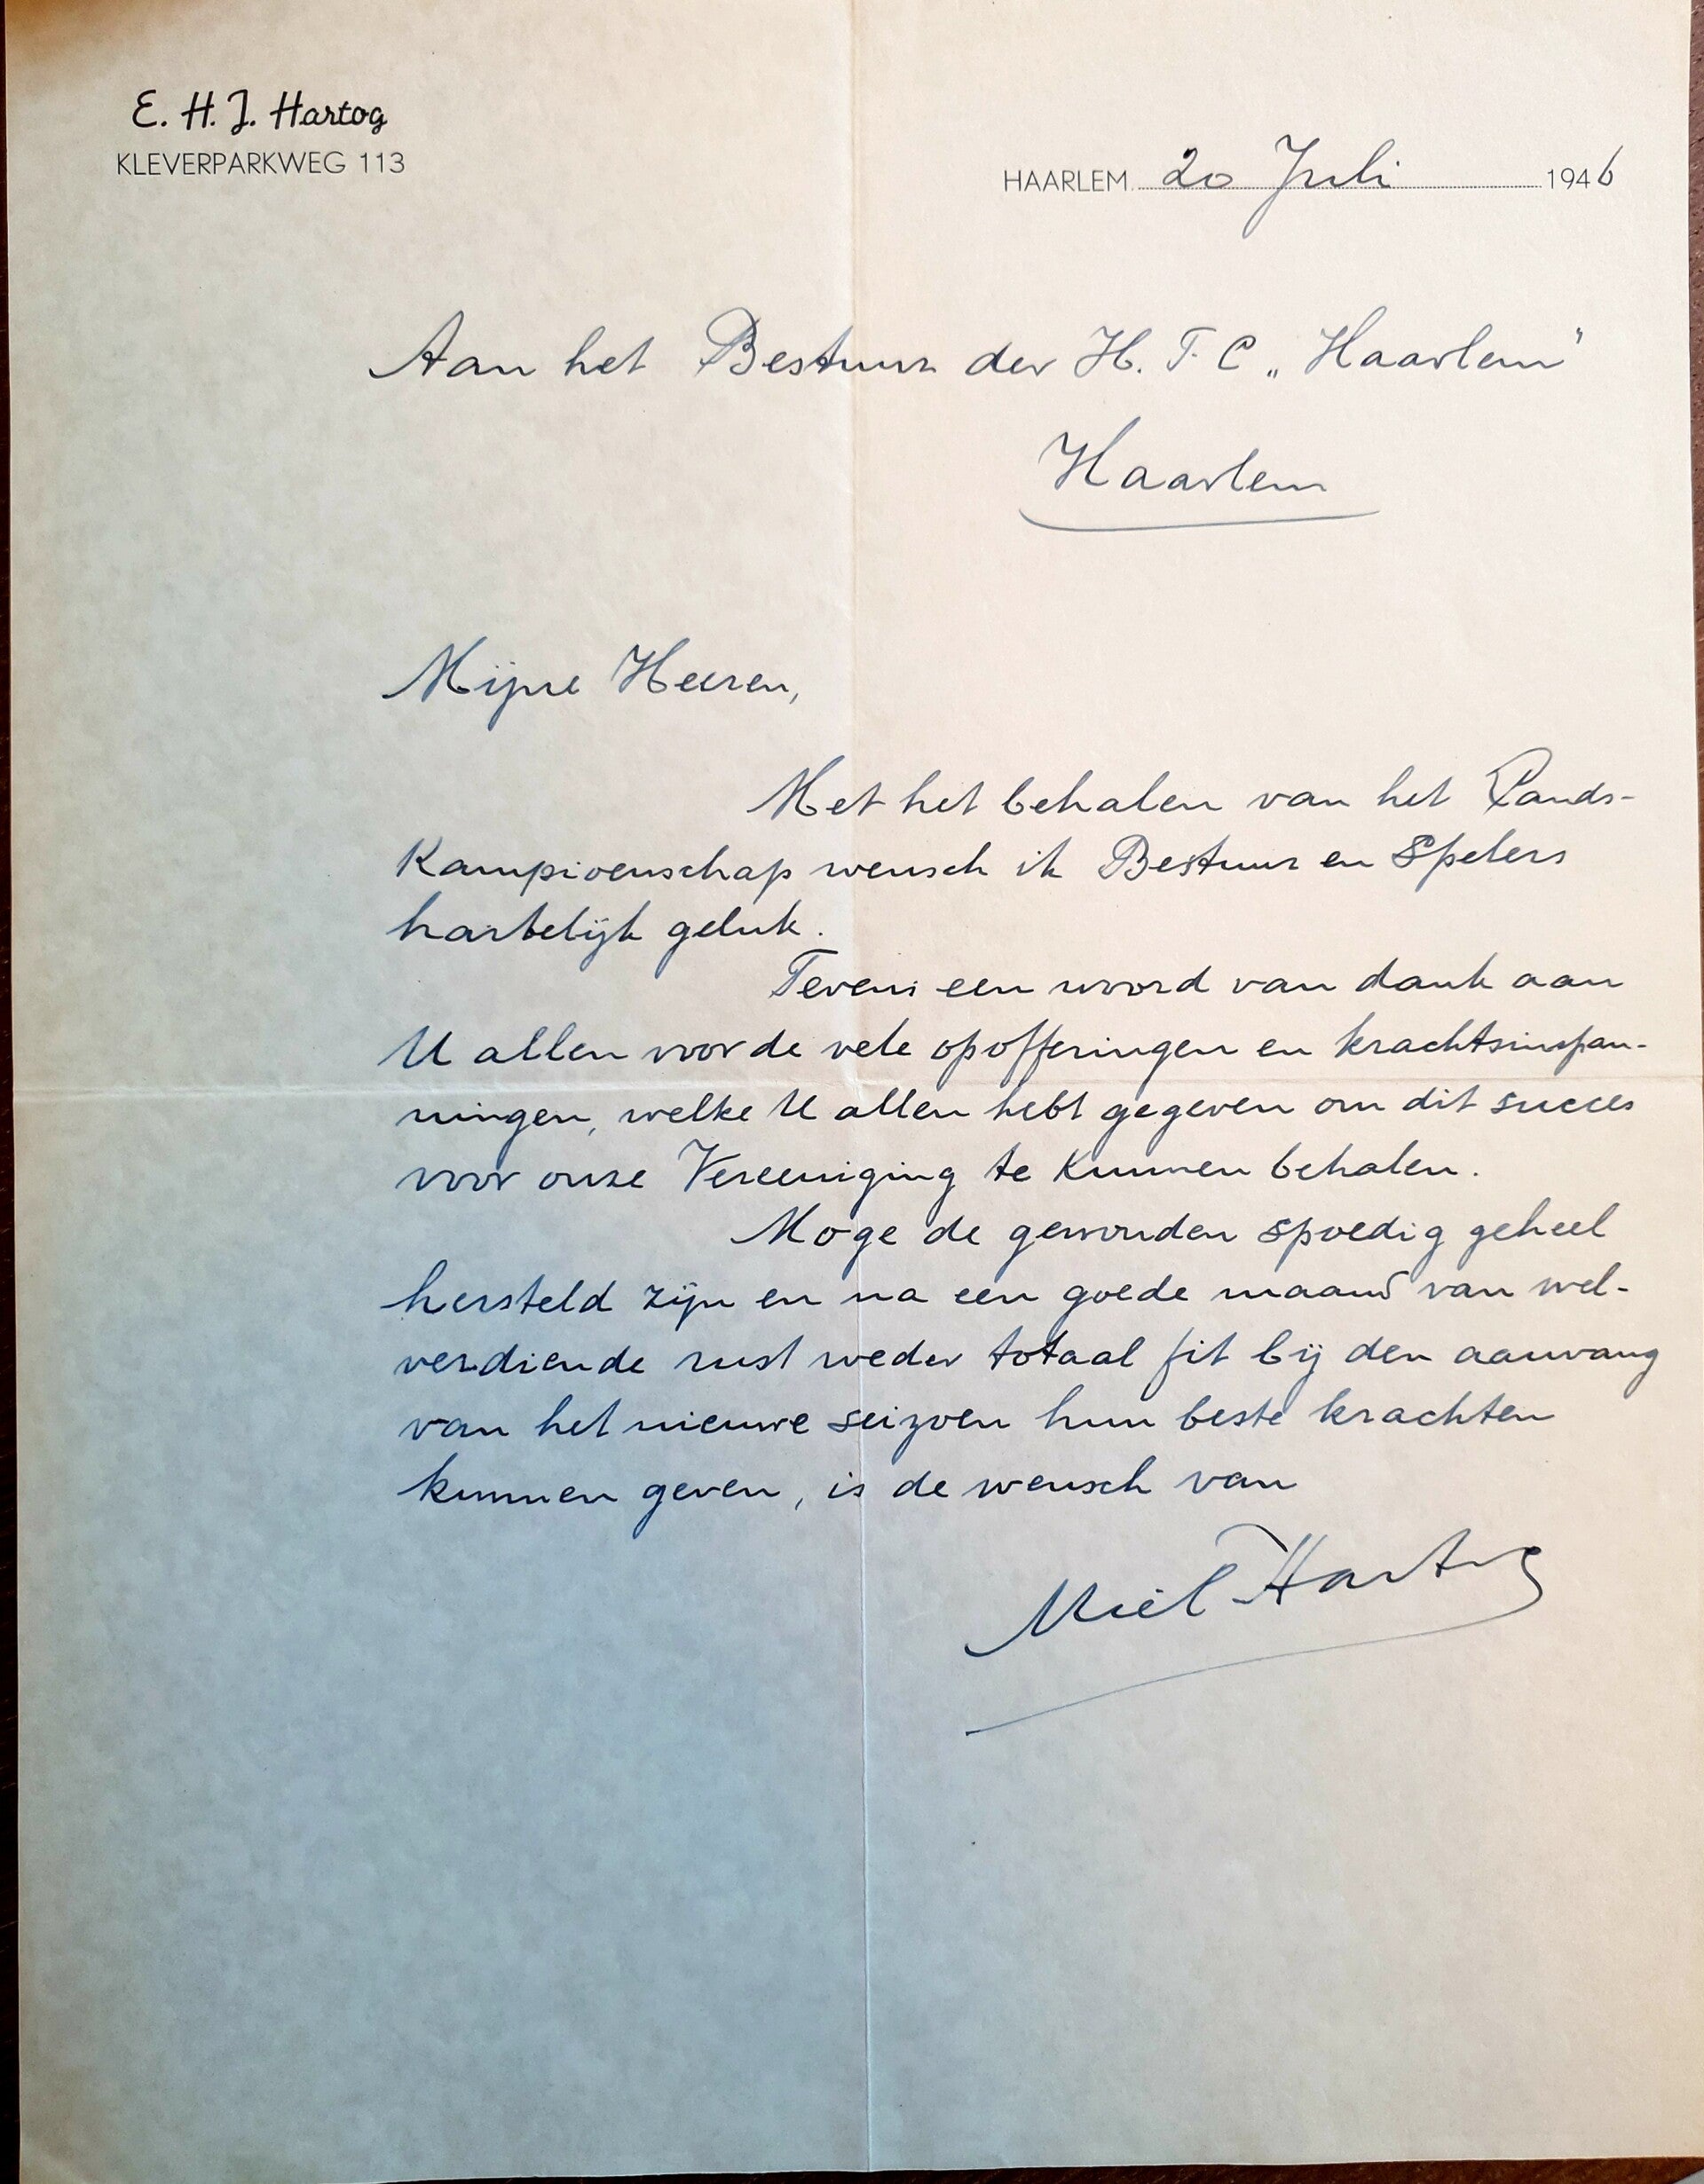 E. H. J. Hartog
KLEVERPARKWEG 113
HAARLEM 20 Juli 1946
Aan het Bestuur der H. F. C „Haarlem"
Haarlem
Mijne Heeren,
Met het behalen van het Lands-
Kampioenschap wensch ik Bestuur en Spelers
hartelijk geluk.
Tevens een woord van dank aan
U allen voor de vele opofferingen en krachtsinspan-
ningen, welke U allen hebt gegeven om dit succes
voor onze Vereeniging te kunnen behalen.
Moge de gewonden spoedig geheel
hersteld zijn en na een goede maand van wel-
verdiende rust weder totaal fit bij den aanvang
van het nieuwe seizoen hun beste krachten
kunnen geven, is de wensch van
Miel Hartog